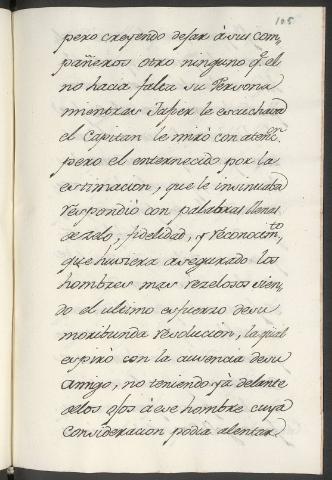 105
pero creyendo dejar à sus com-
pañeros otro ninguno q.e el
no hacia falta su Persona
mientras Jafier le escuchava
el Capitan le mirò con atenn.
pero el enternecido por la
estimacion, que le insinuaba
respondiò con palabras llenas
de zelo, fidelidad, y reconocim.to
que huviera asegurado los
hombres mas rezelosos sien-
do el ultimo esfuerzo de su
moribunda resolucion, la qual
espirò con la ausencia de su
amigo, no teniendo yà delante
de los ojos à ese hombre cuya
consideracion podia alentar